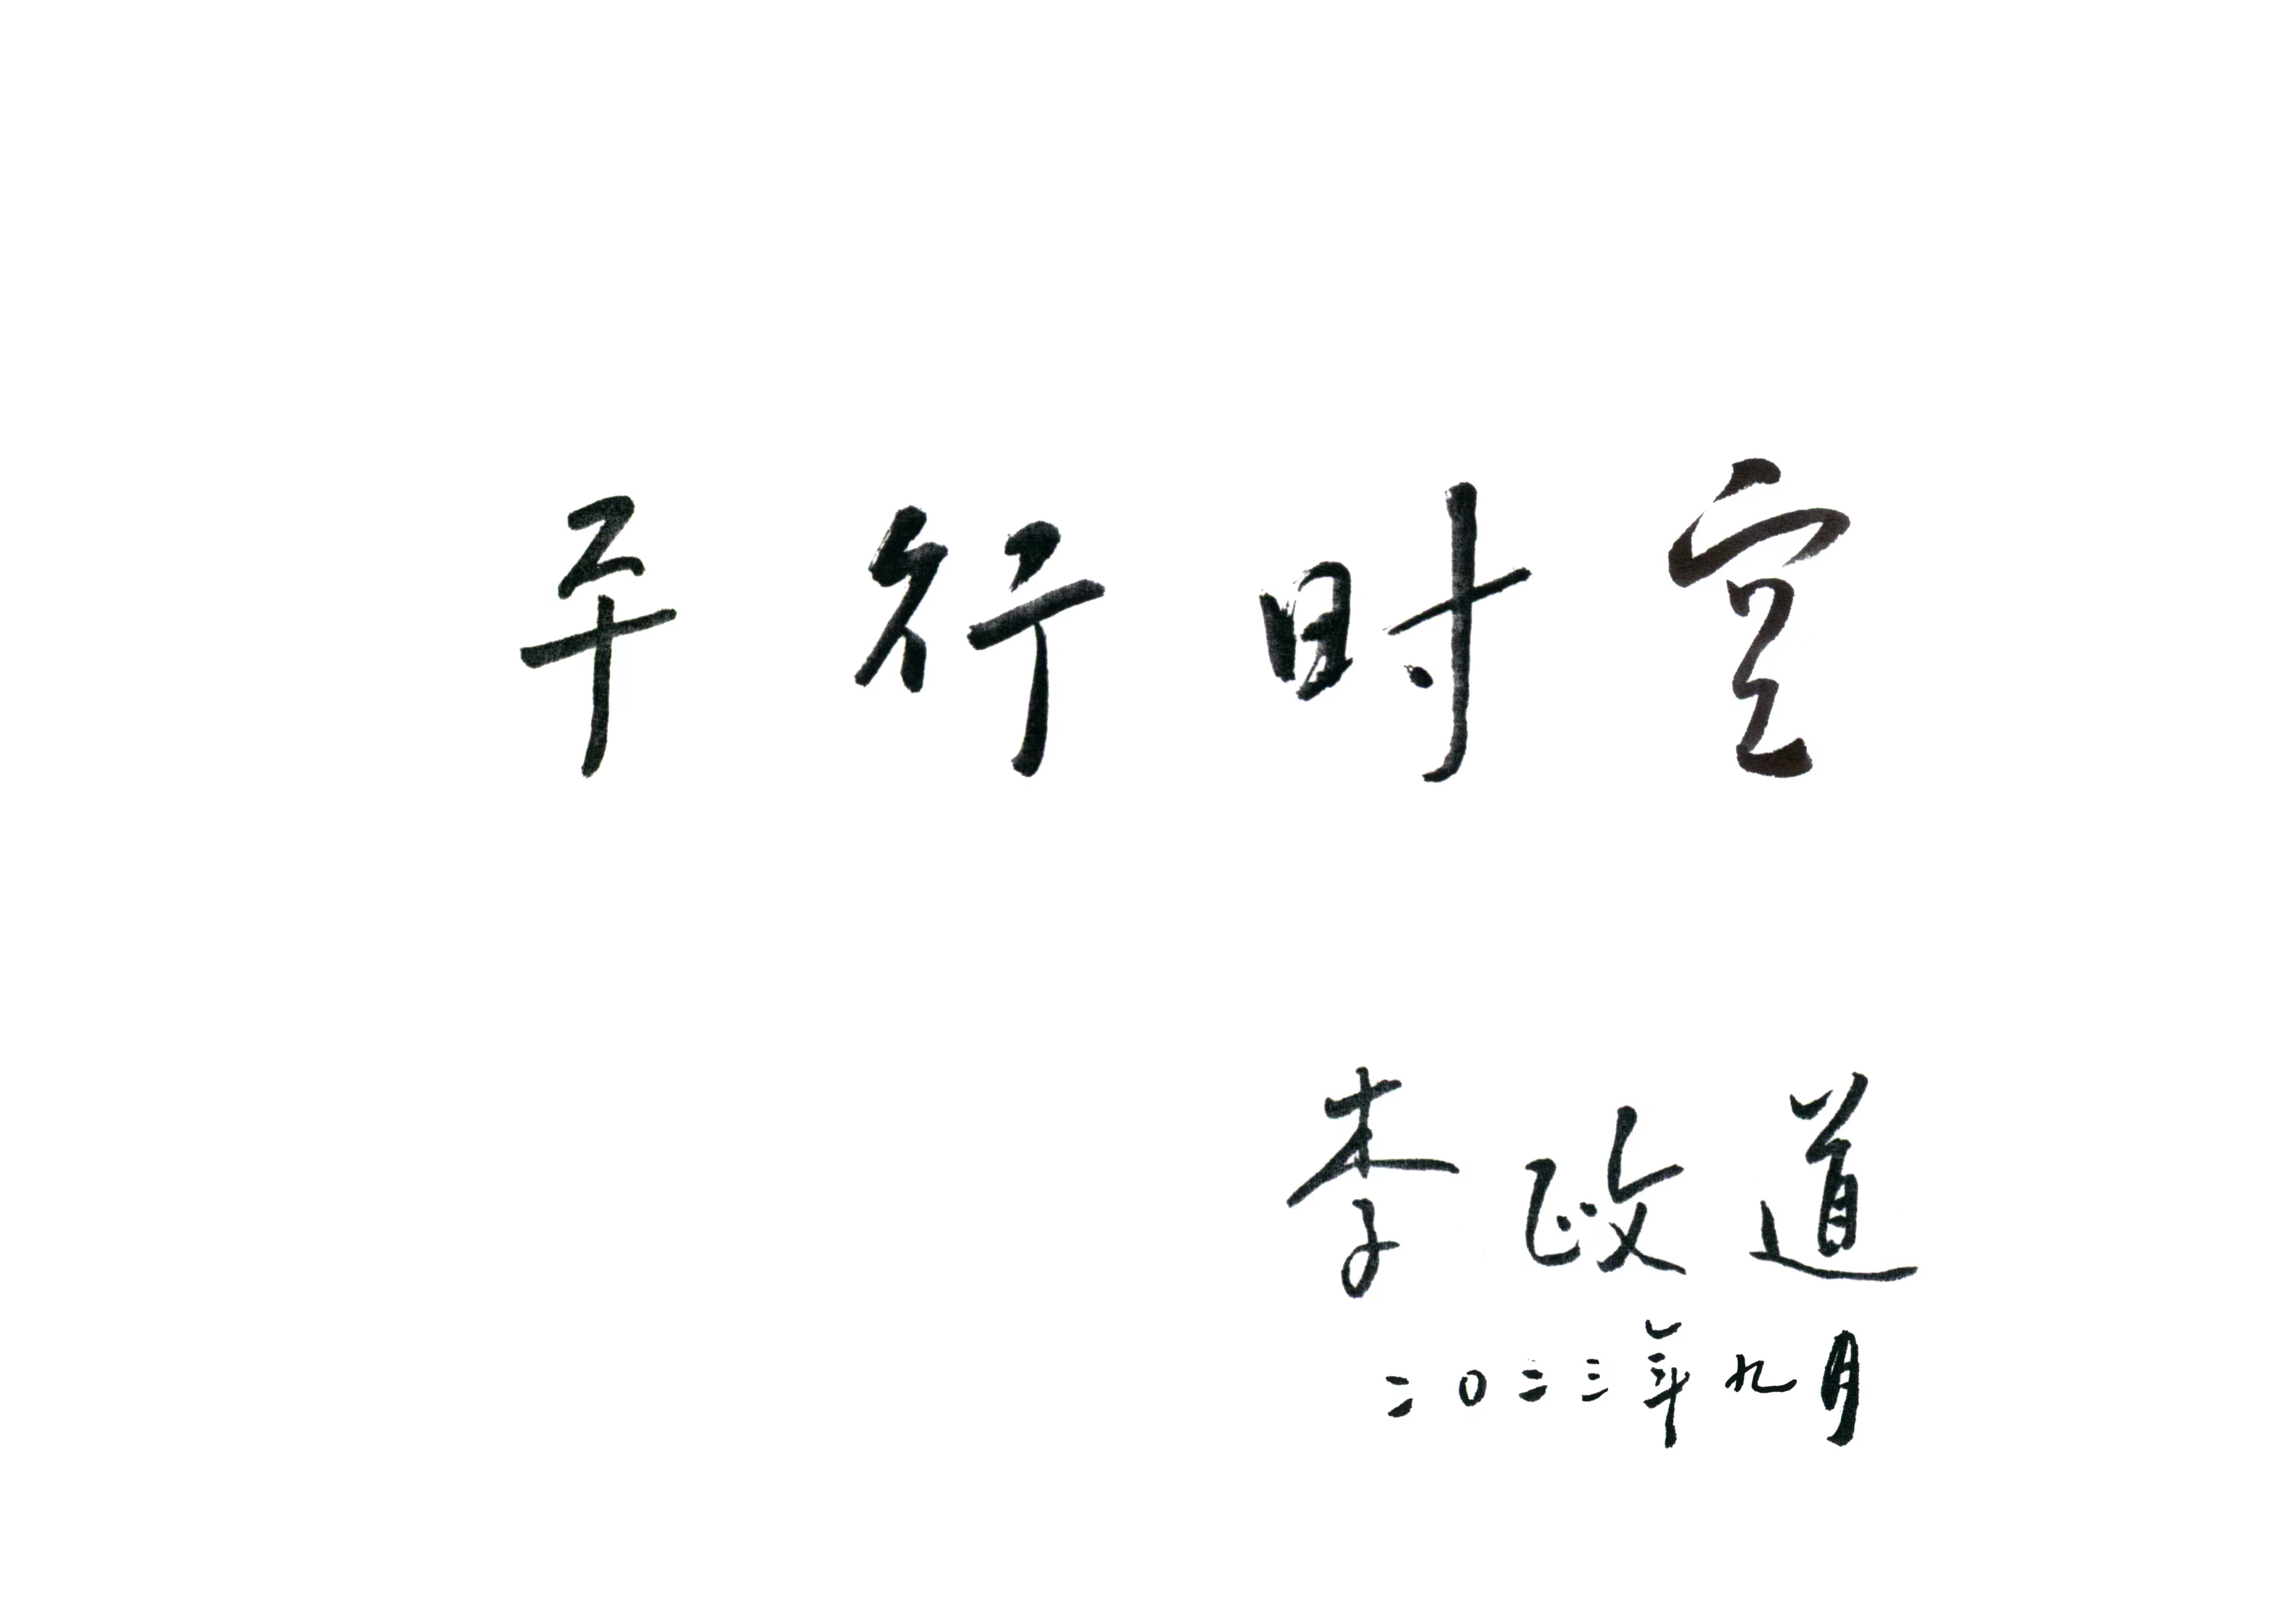 平行时空
李政道
二〇二三年九月